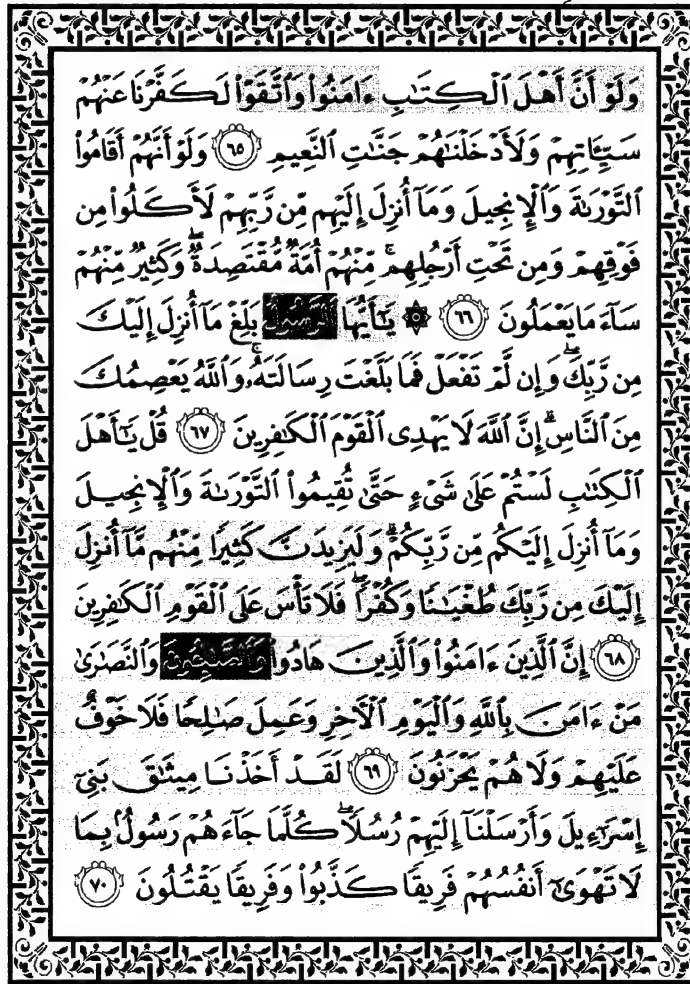 وَلَوْ أَنَّ أَهْلَ ٱلْكِتَٰبِ ءَامَنُوا۟ وَٱتَّقَوْا۟ لَكَفَّرْنَا عَنْهُمْ
سَيِّـَٔاتِهِمْ وَلَأَدْخَلْنَٰهُمْ جَنَّٰتِ ٱلنَّعِيمِ ٦٥ وَلَوْ أَنَّهُمْ أَقَامُوا۟
ٱلتَّوْرَىٰةَ وَٱلْإِنجِيلَ وَمَآ أُنزِلَ إِلَيْهِم مِّن رَّبِّهِمْ لَأَكَلُوا۟ مِن
فَوْقِهِمْ وَمِن تَحْتِ أَرْجُلِهِم ۚ مِّنْهُمْ أُمَّةٌ مُّقْتَصِدَةٌ ۖ وَكَثِيرٌ مِّنْهُمْ
سَآءَ مَا يَعْمَلُونَ ٦٦ ۞ يَٰٓأَيُّهَا ٱلرَّسُولُ بَلِّغْ مَآ أُنزِلَ إِلَيْكَ
مِن رَّبِّكَ ۖ وَإِن لَّمْ تَفْعَلْ فَمَا بَلَّغْتَ رِسَالَتَهُۥ ۚ وَٱللَّهُ يَعْصِمُكَ
مِنَ ٱلنَّاسِ ۗ إِنَّ ٱللَّهَ لَا يَهْدِى ٱلْقَوْمَ ٱلْكَٰفِرِينَ ٦٧ قُلْ يَٰٓأَهْلَ
ٱلْكِتَٰبِ لَسْتُمْ عَلَىٰ شَىْءٍ حَتَّىٰ تُقِيمُوا۟ ٱلتَّوْرَىٰةَ وَٱلْإِنجِيلَ
وَمَآ أُنزِلَ إِلَيْكُم مِّن رَّبِّكُمْ ۗ وَلَيَزِيدَنَّ كَثِيرًا مِّنْهُم مَّآ أُنزِلَ
إِلَيْكَ مِن رَّبِّكَ طُغْيَٰنًا وَكُفْرًا ۖ فَلَا تَأْسَ عَلَى ٱلْقَوْمِ ٱلْكَٰفِرِينَ
٦٨ إِنَّ ٱلَّذِينَ ءَامَنُوا۟ وَٱلَّذِينَ هَادُوا۟ وَٱلصَّٰبِـُٔونَ وَٱلنَّصَٰرَىٰ
مَنْ ءَامَنَ بِٱللَّهِ وَٱلْيَوْمِ ٱلْأَخِرِ وَعَمِلَ صَٰلِحًا فَلَا خَوْفٌ
عَلَيْهِمْ وَلَا هُمْ يَحْزَنُونَ ٦٩ لَقَدْ أَخَذْنَا مِيثَٰقَ بَنِىٓ
إِسْرَٰٓءِيلَ وَأَرْسَلْنَآ إِلَيْهِمْ رُسُلًا ۖ كُلَّمَا جَآءَهُمْ رَسُولٌۢ بِمَا
لَا تَهْوَىٰٓ أَنفُسُهُمْ فَرِيقًا كَذَّبُوا۟ وَفَرِيقًا يَقْتُلُونَ ٧٠